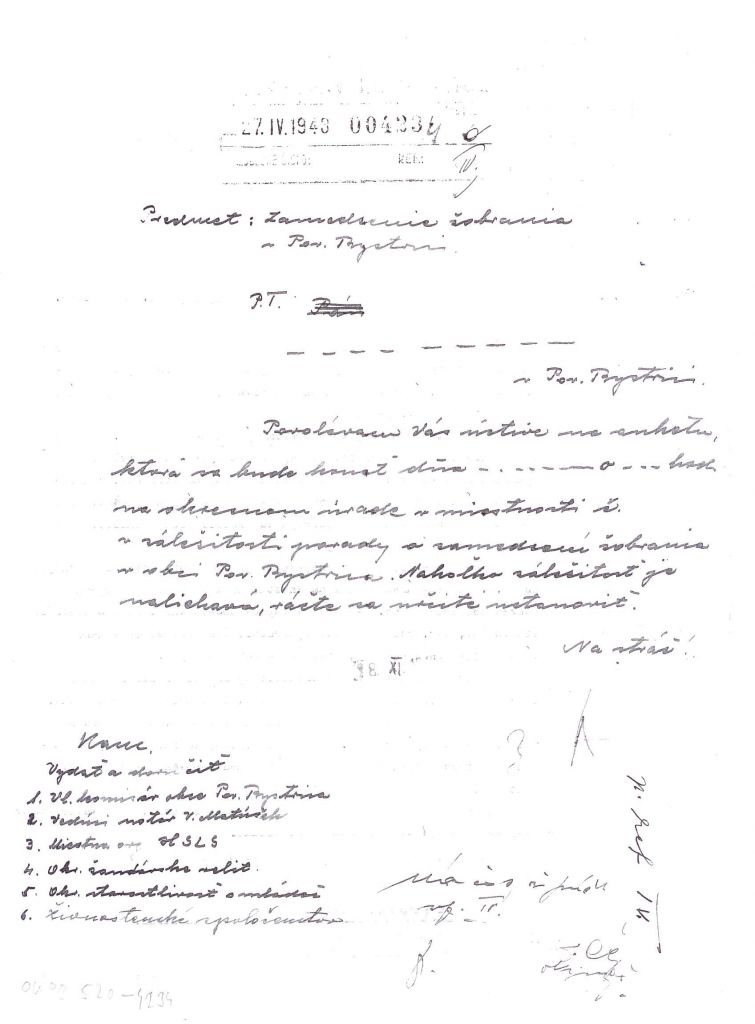 27.IV.1943 004234
IV.
Predmet: Zamedzenie žobrania
v Pov. Bystrici.
P.T. Pán
v Pov. Bystrici.
Povolávam Vás úctive na anketu,
ktorá sa bude konať dňa - . - - - - - o - - - hod.
na okresnom úrade v miestnosti č.
v záležitosti porady o zamedzení žobrania
v obci Pov. Bystrica. Nakoľko záležitosť je
naliehavá, ráčte sa určite ustanoviť.
Na stráž!
XI
Kanc.
Vydať a doručiť
1. Vl. komisár obce Pov. Bystrica
2. Vedúci notár V. Matúšek
3. Miestna org HSĽS
4. Okr. žandárske velit.
5. Okr. starostlivosť o mládež
6. Živnostenské spoločenstvo
520-4234